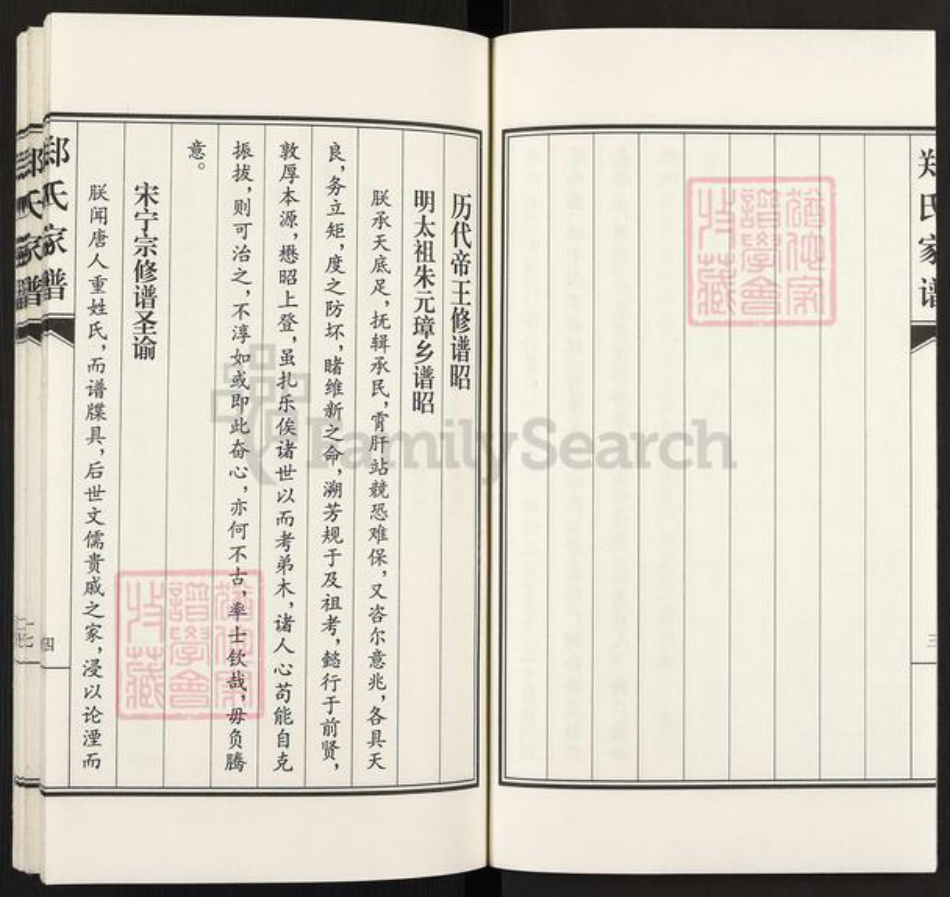 郑氏家谱
三
历代帝王修谱昭
明太祖朱元璋乡谱昭
朕承天底足，抚辑承民，霄肝站兢恐难保，又咨尔意兆，各具天
良，务立矩，度之防坏，睹维新之命，溯芳规于及祖考，懿行于前贤，
敦厚本源，懋昭上登，虽扎乐俟诸世以而考弟木，诸人心苟能自克
振拔，则可治之，不淳如或即此奋心，亦何不古，率士钦哉，毋负腾
意。
宋宁宗修谱圣谕
朕闻唐人重姓氏，而谱牒具，后世文儒贵戚之家，浸以论湮而
郑氏家谱
四
郑氏家谱
FamilySearch
谱学会
收藏
谱学会
收藏